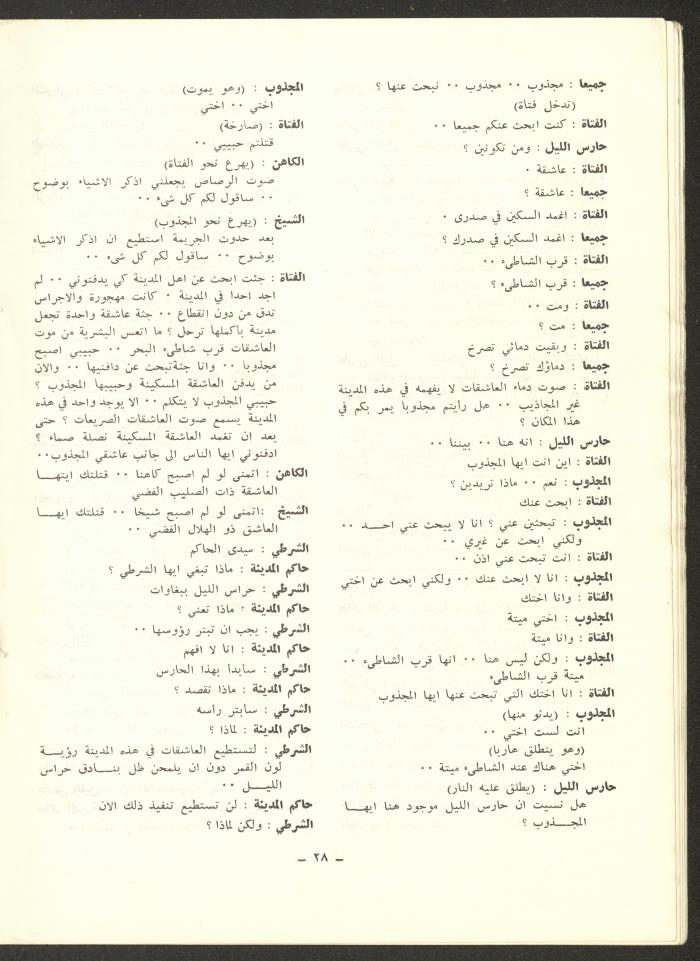 جميعا : مجذوب ٠٠ مجذوب ٠٠ نبحث عنها ؟
(تدخل فتاة)
الفتاة : كنت ابحث عنكم جميعا ٠٠
حارس الليل : ومن تكونين ؟
الفتاة : عاشقة ٠
جميعا : عاشقة ؟
الفتاة : اغمد السكين في صدرى ٠
جميعا : اغمد السكين في صدرك ؟
الفتاة : قرب الشاطىء ٠٠
جميعا : قرب الشاطىء ؟
الفتاة : ومت ٠٠
جميعا : مت ؟
الفتاة : وبقيت دمائي تصرخ
جميعا : دماؤك تصرخ ؟
الفتاة : صوت دماء العاشقات لا يفهمه في هذه المدينة
غير المجاذيب ٠٠ هل رأيتم مجذوبا يمر بكم في
هذا المكان ؟
حارس الليل : انه هنا ٠٠ بيننا ٠٠
الفتاة : اين انت ايها المجذوب
المجذوب : نعم ٠٠ ماذا تريدين ؟
الفتاة : ابحث عنك
المجذوب : تبحثين عني ؟ انا لا يبحث عني احـــد ٠٠
ولكني ابحث عن غيري ٠٠
الفتاة : انت تبحث عني اذن ٠٠
المجذوب : انا لا ابحث عنك ٠٠ ولكني ابحث عن اختي
الفتاة : وانا اختك
المجذوب : اختي ميتة
الفتاة : وانا ميتة
المجذوب : ولكن ليس هنا ٠٠ انها قرب الشاطىء ٠٠
ميتة قرب الشاطىء
الفتاة : انا اختك التي تبحث عنها ايها المجذوب
المجذوب : (يدنو منها)
انت لست اختي ٠٠
(وهو ينطلق هاربا)
اختي هناك عند الشاطىء ميتة ٠٠
حارس الليل : (يطلق عليه النار)
هل نسيت ان حارس الليل موجود هنا ايهـــا
المجـــذوب ؟
المجذوب : (وهو يموت)
اختي ٠٠ اختي
الفتاة : (صارخة)
قتلتم حبيبي ٠٠
الكاهن : (يهرع نحو الفتاة)
صوت الرصاص يجعلني اذكر الاشياء بوضوح
٠٠ ساقول لكم كل شىء ٠٠
الشيخ : (يهرع نحو المجذوب)
بعد حدوث الجريمة استطيع ان اذكر الاشياء
بوضوح ٠٠ ساقول لكم كل شىء ٠٠
الفتاة : جئت ابحث عن اهل المدينة كي يدفنوني ٠٠ لم
اجد احدا في المدينة ٠ كانت مهجورة والاجراس
تدق من دون انقطاع ٠٠ جثة عاشقة واحدة تجعل
مدينة باكملها ترحل ؟ ما اتعس البشرية من موت
العاشقات قرب شاطىء البحر ٠٠ حبيبي اصبح
مجذوبا ٠٠ وانا جثةتبحث عن دافنيها ٠٠ والان
من يدفن العاشقة المسكينة وحبيبها المجذوب ؟
حبيبي المجذوب لا يتكلم ٠٠ الا يوجد واحد في هذه
المدينة يسمع صوت العاشقات الصريعات ؟ حتى
بعد ان تغمد العاشقة المسكينة نصلة صماء ؟
ادفنوني ايها الناس الى جانب عاشقي المجذوب٠٠
الكاهن : اتمنى لو لم اصبح كاهنا ٠٠ قتلتك ايتهـــا
العاشقة ذات الصليب الفضي
الشيخ :اتمنى لو لم اصبح شيخا ٠٠ قتلتك ايهـــا
العاشق ذو الهلال الفضي ٠٠
الشرطي : سيدى الحاكم
حاكم المدينة : ماذا تبغي ايها الشرطي ؟
الشرطي : حراس الليل ببغاوات
حاكم المدينة : ماذا تعني ؟
الشرطي : يجب ان تبتر رؤوسها ٠٠
حاكم المدينة : انا لا افهم
الشرطي : سأبدأ بهذا الحارس
حاكم المدينة : ماذا تقصد ؟
الشرطي : سأبتر رأسه
حاكم المدينة : لماذا ؟
الشرطي : لتستطيع العاشقات في هذه المدينة رؤيـــة
لون القمر دون ان يلمحن ظل بنـــادق حراس
الليـــل ٠٠
حاكم المدينة : لن تستطيع تنفيذ ذلك الان
الشرطي : ولكن لماذا ؟
– ٢٨ –